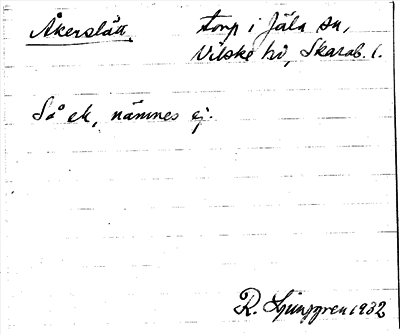 Åkerslätt, torp i Jäla sn,
Vilske hd, Skarab. l.
Så ek, nämnes ej.
R. Ljunggren 1932